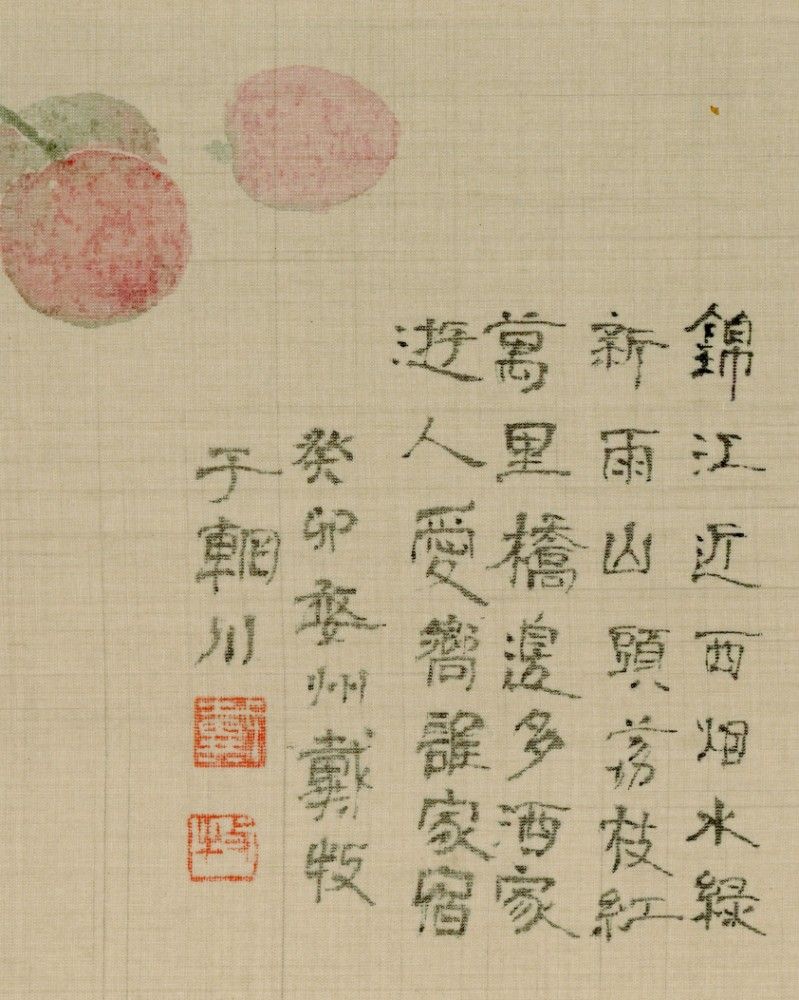 錦江近西烟水綠
新雨山頭荔枝紅
萬里橋邊多酒家
遊人愛嚮誰家宿
癸卯婺州戴牧
于輞川
戴
牧